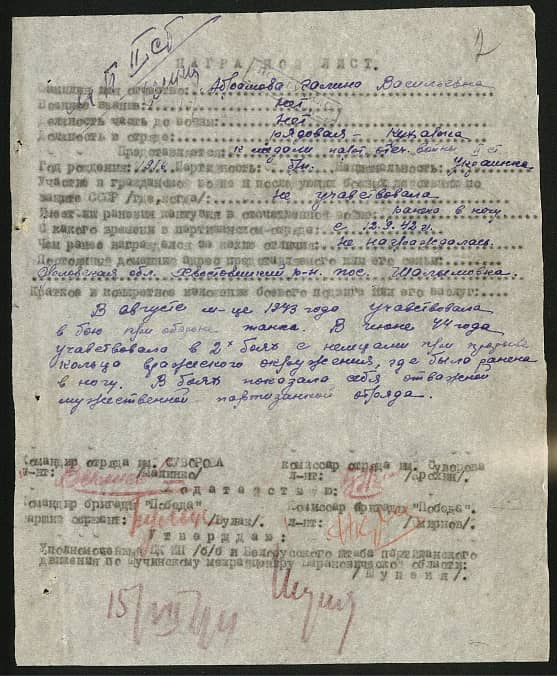 II ст
2
НАГРАДНОЙ ЛИСТ.
Фамилия имя отчество: Абрашова Галина Васильевна
Военное звание: Нет
Должность часть до войны: Нет
Должность в отряде: рядовая -
Представляется: к медали парт. отеч. войны II ст.
Год рождения: Партийность: б/п. Национальность: Украинка
Участие в гражданской войне и последующих боевых действиях по
защите СССР /где, когда/: не учавствовала
Имеет ли ранения контузии в отечественной войне: ранена в ногу
С какого времени в партизанском отряде: с 12.9.42 г.
Чем ранее награждался за какие отличия: не награждалась
Постоянный домашний адрес представляемого или его семьи:
Орловская обл. Хвостовичский р-н. пос.
Краткое и конкретное изложение боевого подвига или его заслуг:
В августе м-це 1943 года учавствовала
в бою при обороне В июне 44 года
учавствовала в 2х боях с немцами при прорыве
кольца вражеского окружения, где была ранена
в ногу. В боях показала себя отважной
мужественной партизанкой отряда.
Командир отряда им. СУВОРОВА Комиссар отряда им. Суворова
л-нт: /Малинко/ л-нт: /Ерохин/.
Ходатайствую:
Командир бригады "Победа" Комиссар бригады "Победа".
старший сержант: /Булак/. л-нт: /Жирнов/.
Утверждаю:
Уполномоченный ЦК КП /б/б и Белорусского штаба партизанского
движения по Щучинскому межрайцентру Барановической области:
/Шупеня/.
15/VII/44